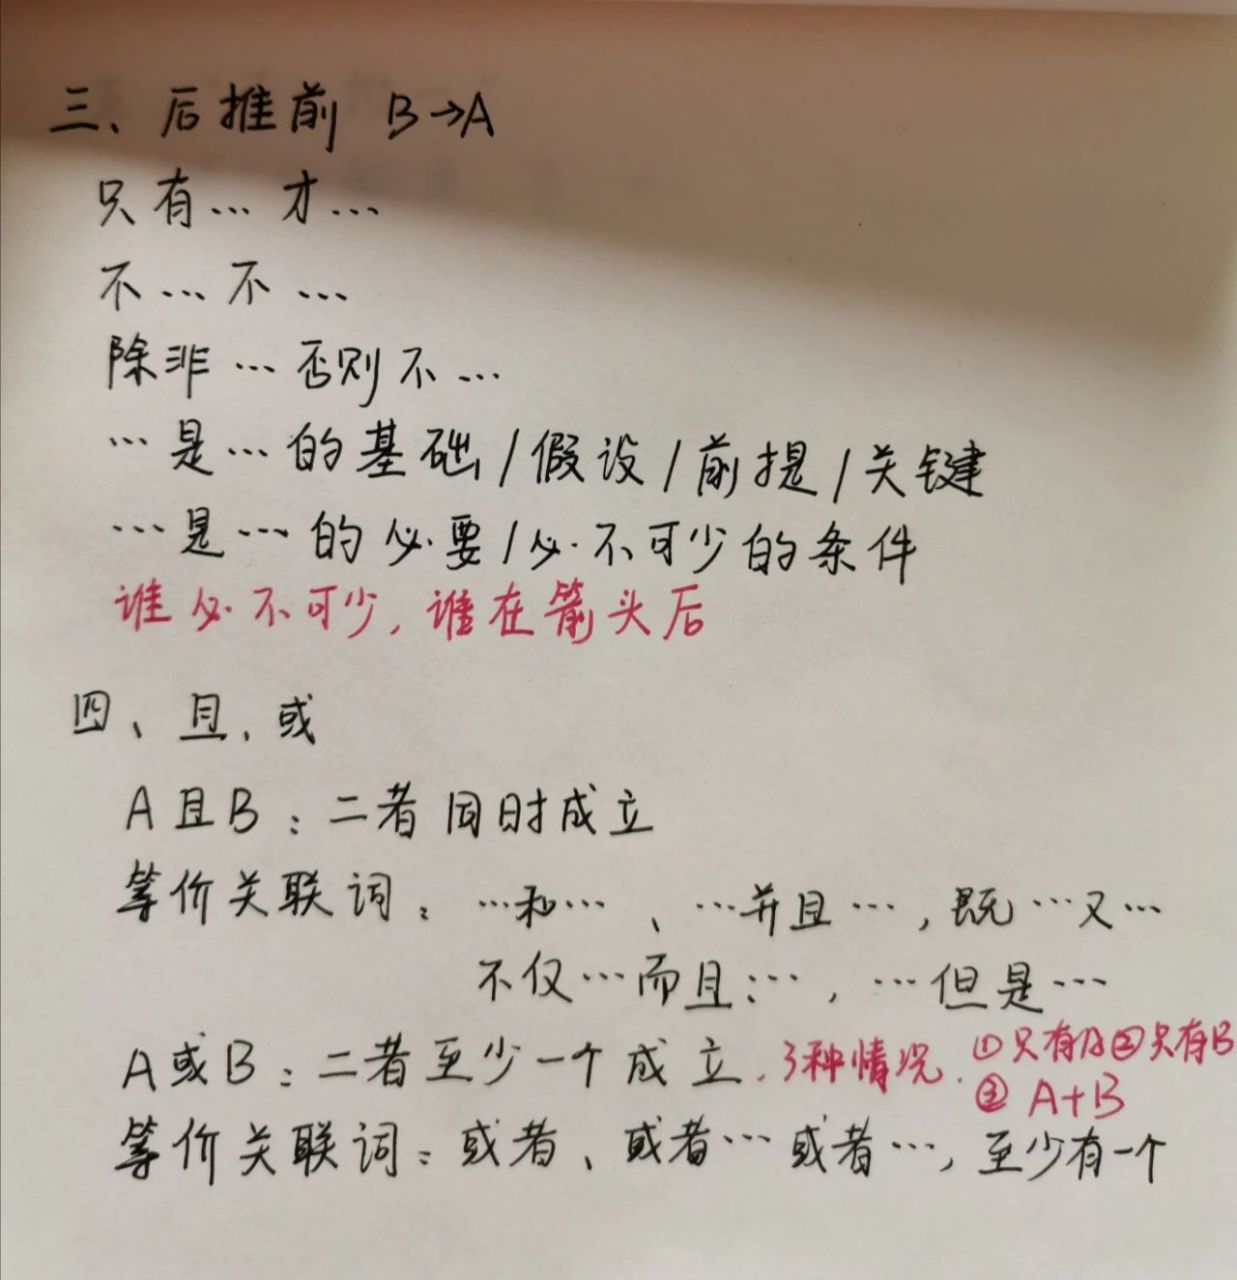 三、后推前 B→A
只有…才…
不…不…
除非…否则不…
…是…的基础/假设/前提/关键
…是…的必要/必不可少的条件
谁必不可少,谁在箭头后
四、且、或
A且B:二者同时成立
等价关联词:…和…、…并且…,既…又…
不仅…而且…,…但是…
A或B:二者至少一个成立.3种情况.①只有A②只有B
③A+B
等价关联词:或者、或者…或者…,至少有一个